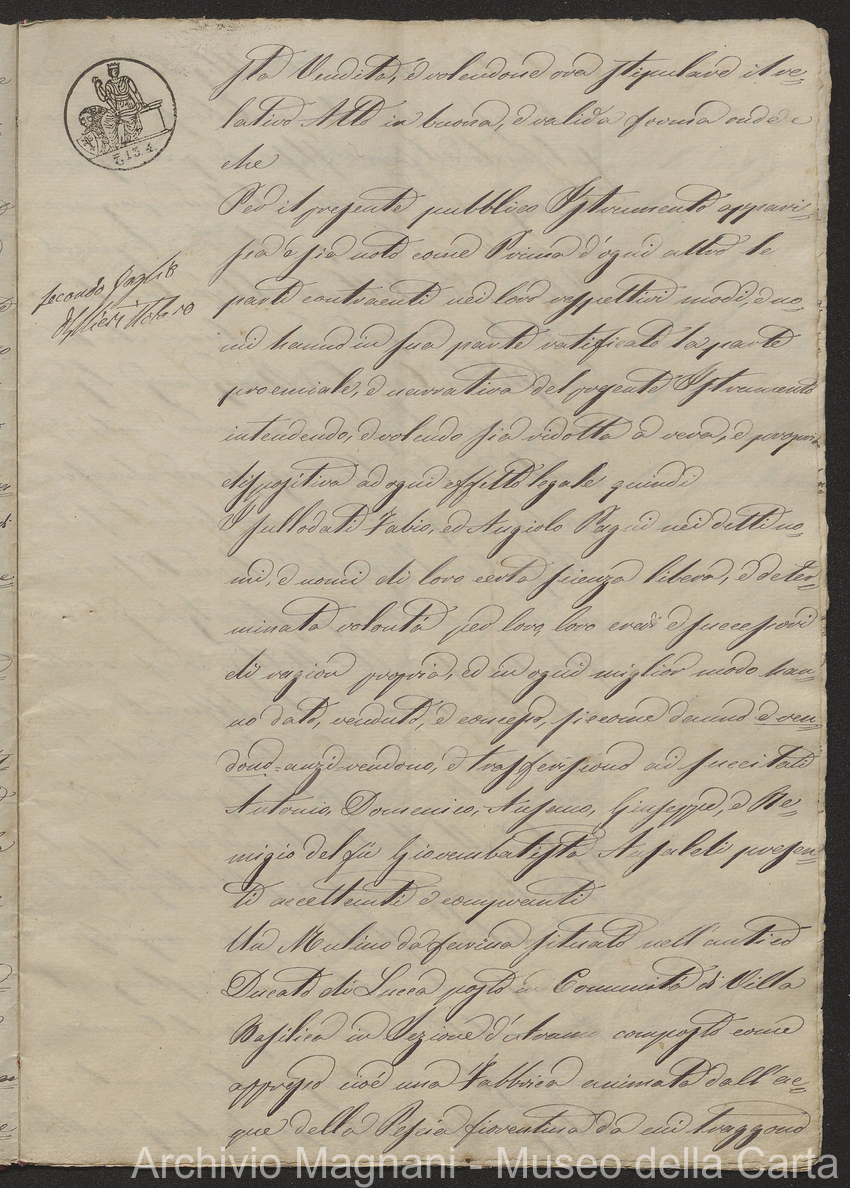 sta Vendita, e volendone ora stipulare il re=
lativo Atto in buona, e valida forma onde e
che
Per il presente pubblico Istrumento appari=
sca e sia noto come Prima d'ogni altro le
parti contraenti nei loro respettivi modi, e no=
mi hanno in sua parte ratificato la parte
proemiale, e narrativa del presente Istrumento
intendendo, e volendo sia ridotta a vera, e propria
dispositiva ad ogni effetto legale quindi
I sullodati Fabio, ed Angiolo Pagni nei detti no=
mi, e nomi di loro certa scienza libera, e deter=
minata volontà per loro, loro eredi e successori
di ragion propria, ed in ogni miglior modo han=
no dato, venduto, e concesso, siccome danno e ven=
dono=anzi vendono, e trasferiscono ai succitati
Antonio, Domenico, Ansano, Giuseppe, e Re=
migio del fù Giovambatista Ansaldi presen=
ti accettanti e compranti
Un Mulino da farina situato nell'antico
Ducato di Lucca posto in Comunità di Villa
Basilica in Sezione d' composto come
appresso cioè una Fabbrica animata dall'ac=
que della Pescia fiorentina da cui traggono
secondo foglio
Notaro
7.13.4.
Archivio Magnani - Museo della Carta